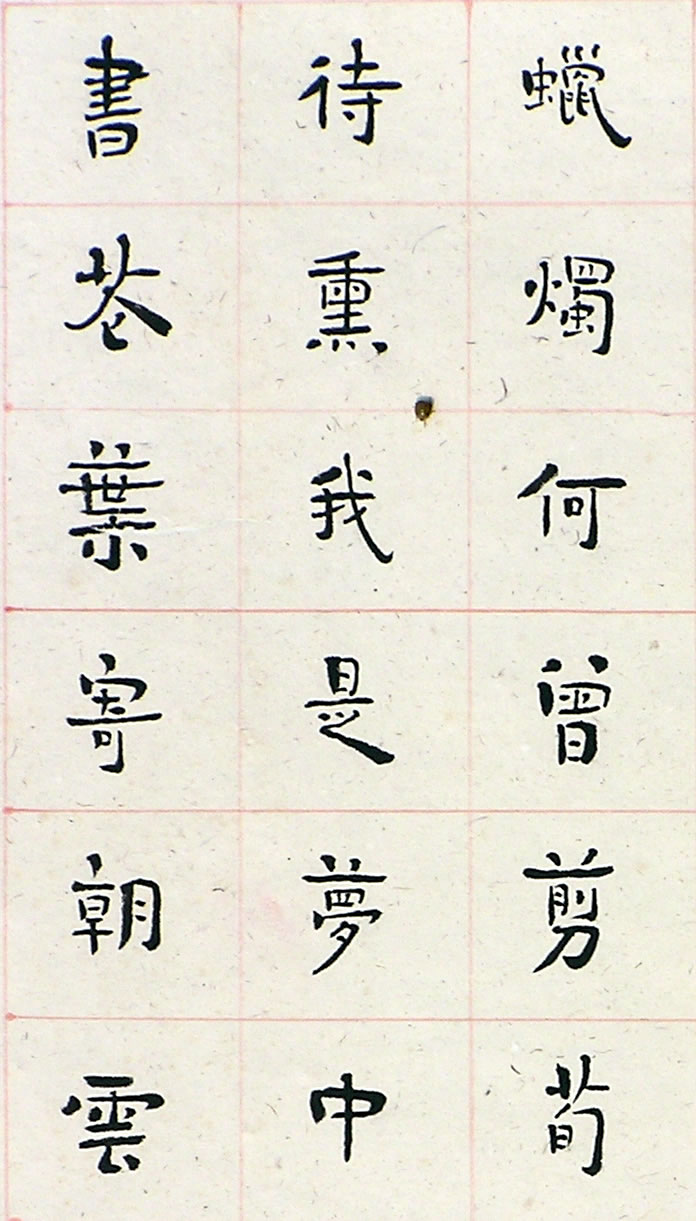 蠟燭何曾剪荀
待熏我是夢中
書花葉寄朝雲